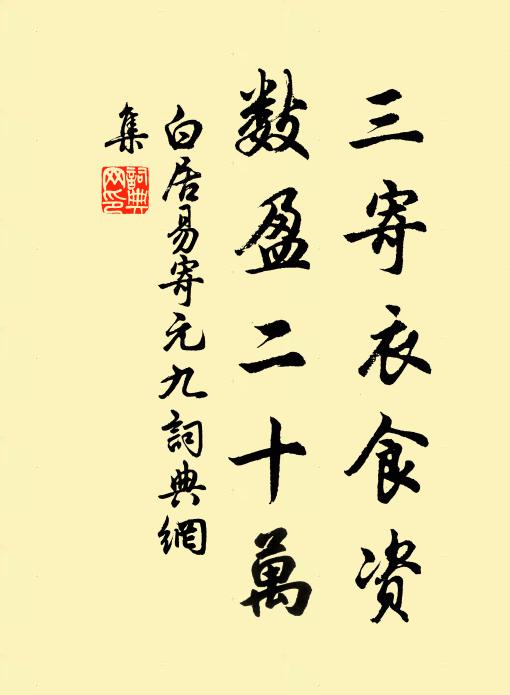 三寄衣食資
數盈二十萬
白居易寄元九詞典網
集
詞典網印